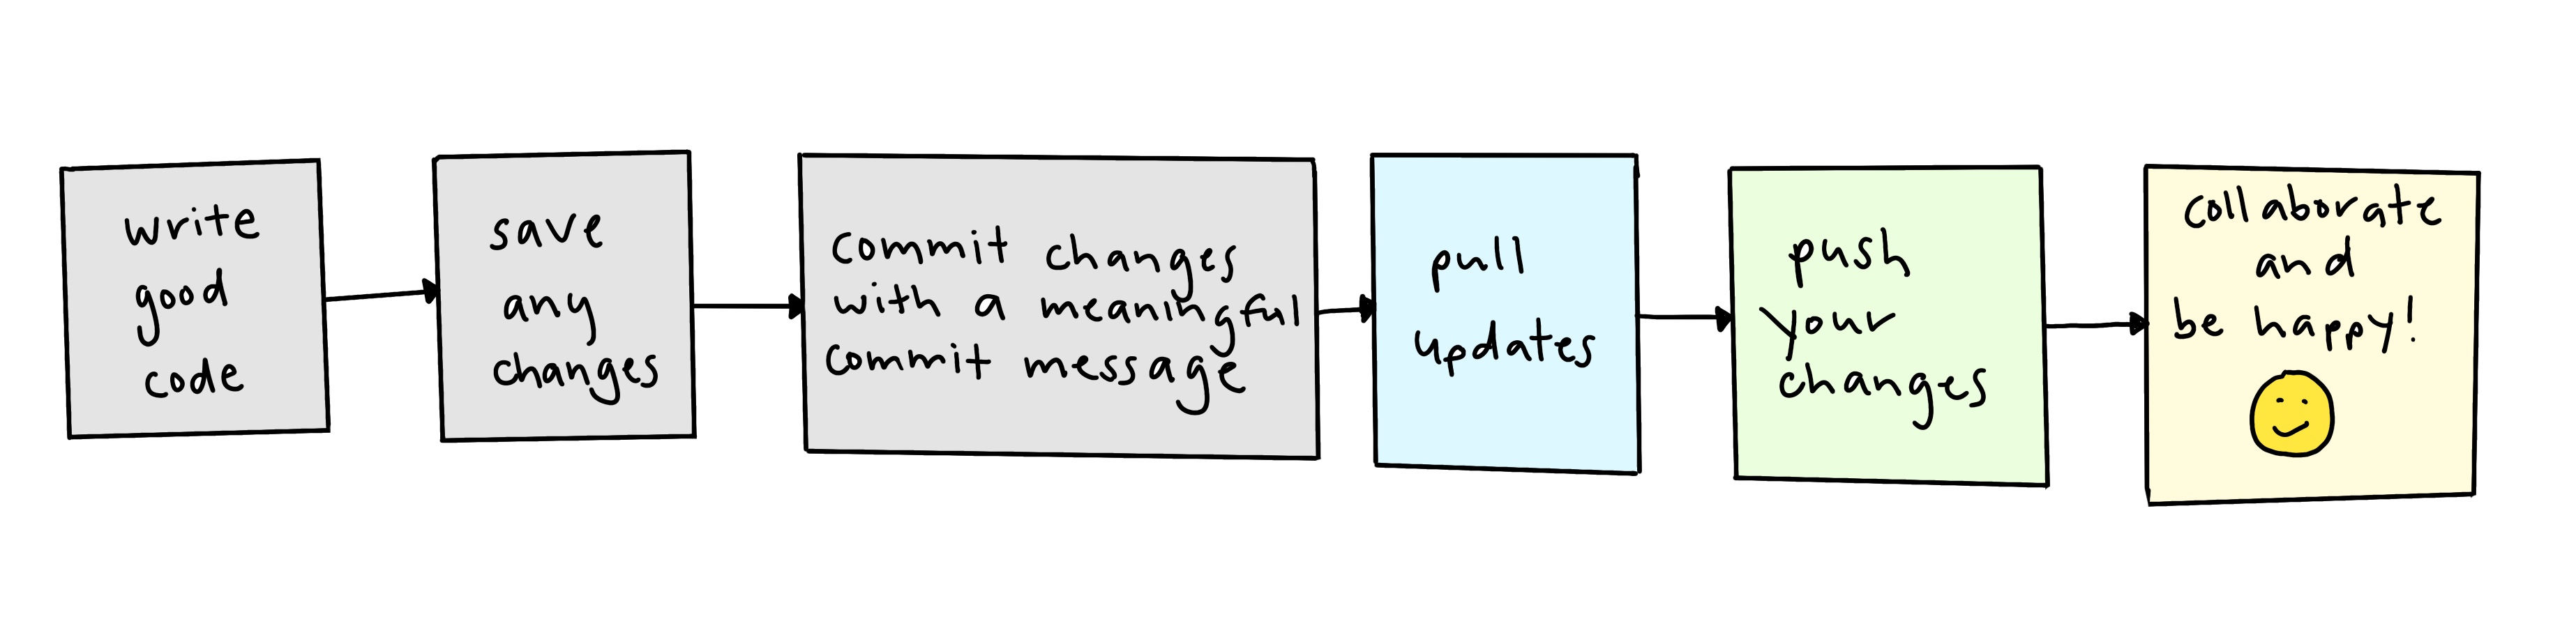 write
good
code
save
any
changes
commit changes
with a meaningful
commit message
pull
updates
push
your
changes
collaborate
and
be happy!